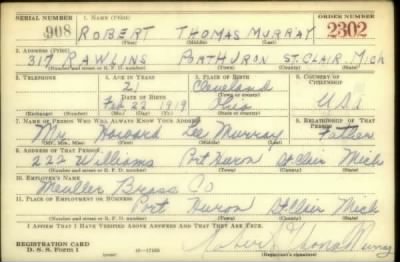 SERIAL NUMBER 1. NAME (PRINT) ORDER NUMBER
908 ROBERT THOMAS MURRAY 2302
(First) (Middle) (Last)
2. ADDRESS (PRINT)
317 RAWLINS PORT HURON ST. CLAIR MICH
(Number and street or R. F. D. number) (Town) (County) (State)
3. TELEPHONE 4. AGE IN YEARS 5. PLACE OF BIRTH 6. COUNTRY OF CITIZENSHIP
21 Cleveland
DATE OF BIRTH (Town or county)
Feb 22 1919 Ohio U.S.
(Exchange) (Number) (Mo.) (Day) (Yr.) (State or country)
7. NAME OF PERSON WHO WILL ALWAYS KNOW YOUR ADDRESS 8. RELATIONSHIP OF THAT PERSON
Mr Howard Lee Murray Father
(Mr., Mrs., Miss) (First) (Middle) (Last)
9. ADDRESS OF THAT PERSON
222 Williams Port Huron St Clair Mich
(Number and street or R. F. D. number) (Town) (County) (State)
10. EMPLOYER'S NAME
Meuller Brass Co
11. PLACE OF EMPLOYMENT OR BUSINESS
Port Huron St Clair Mich
(Number and street or R. F. D. number) (Town) (County) (State)
I AFFIRM THAT I HAVE VERIFIED ABOVE ANSWERS AND THAT THEY ARE TRUE.
REGISTRATION CARD
D. S. S. Form 1 Robert Thomas Murray
(Registrant's signature)